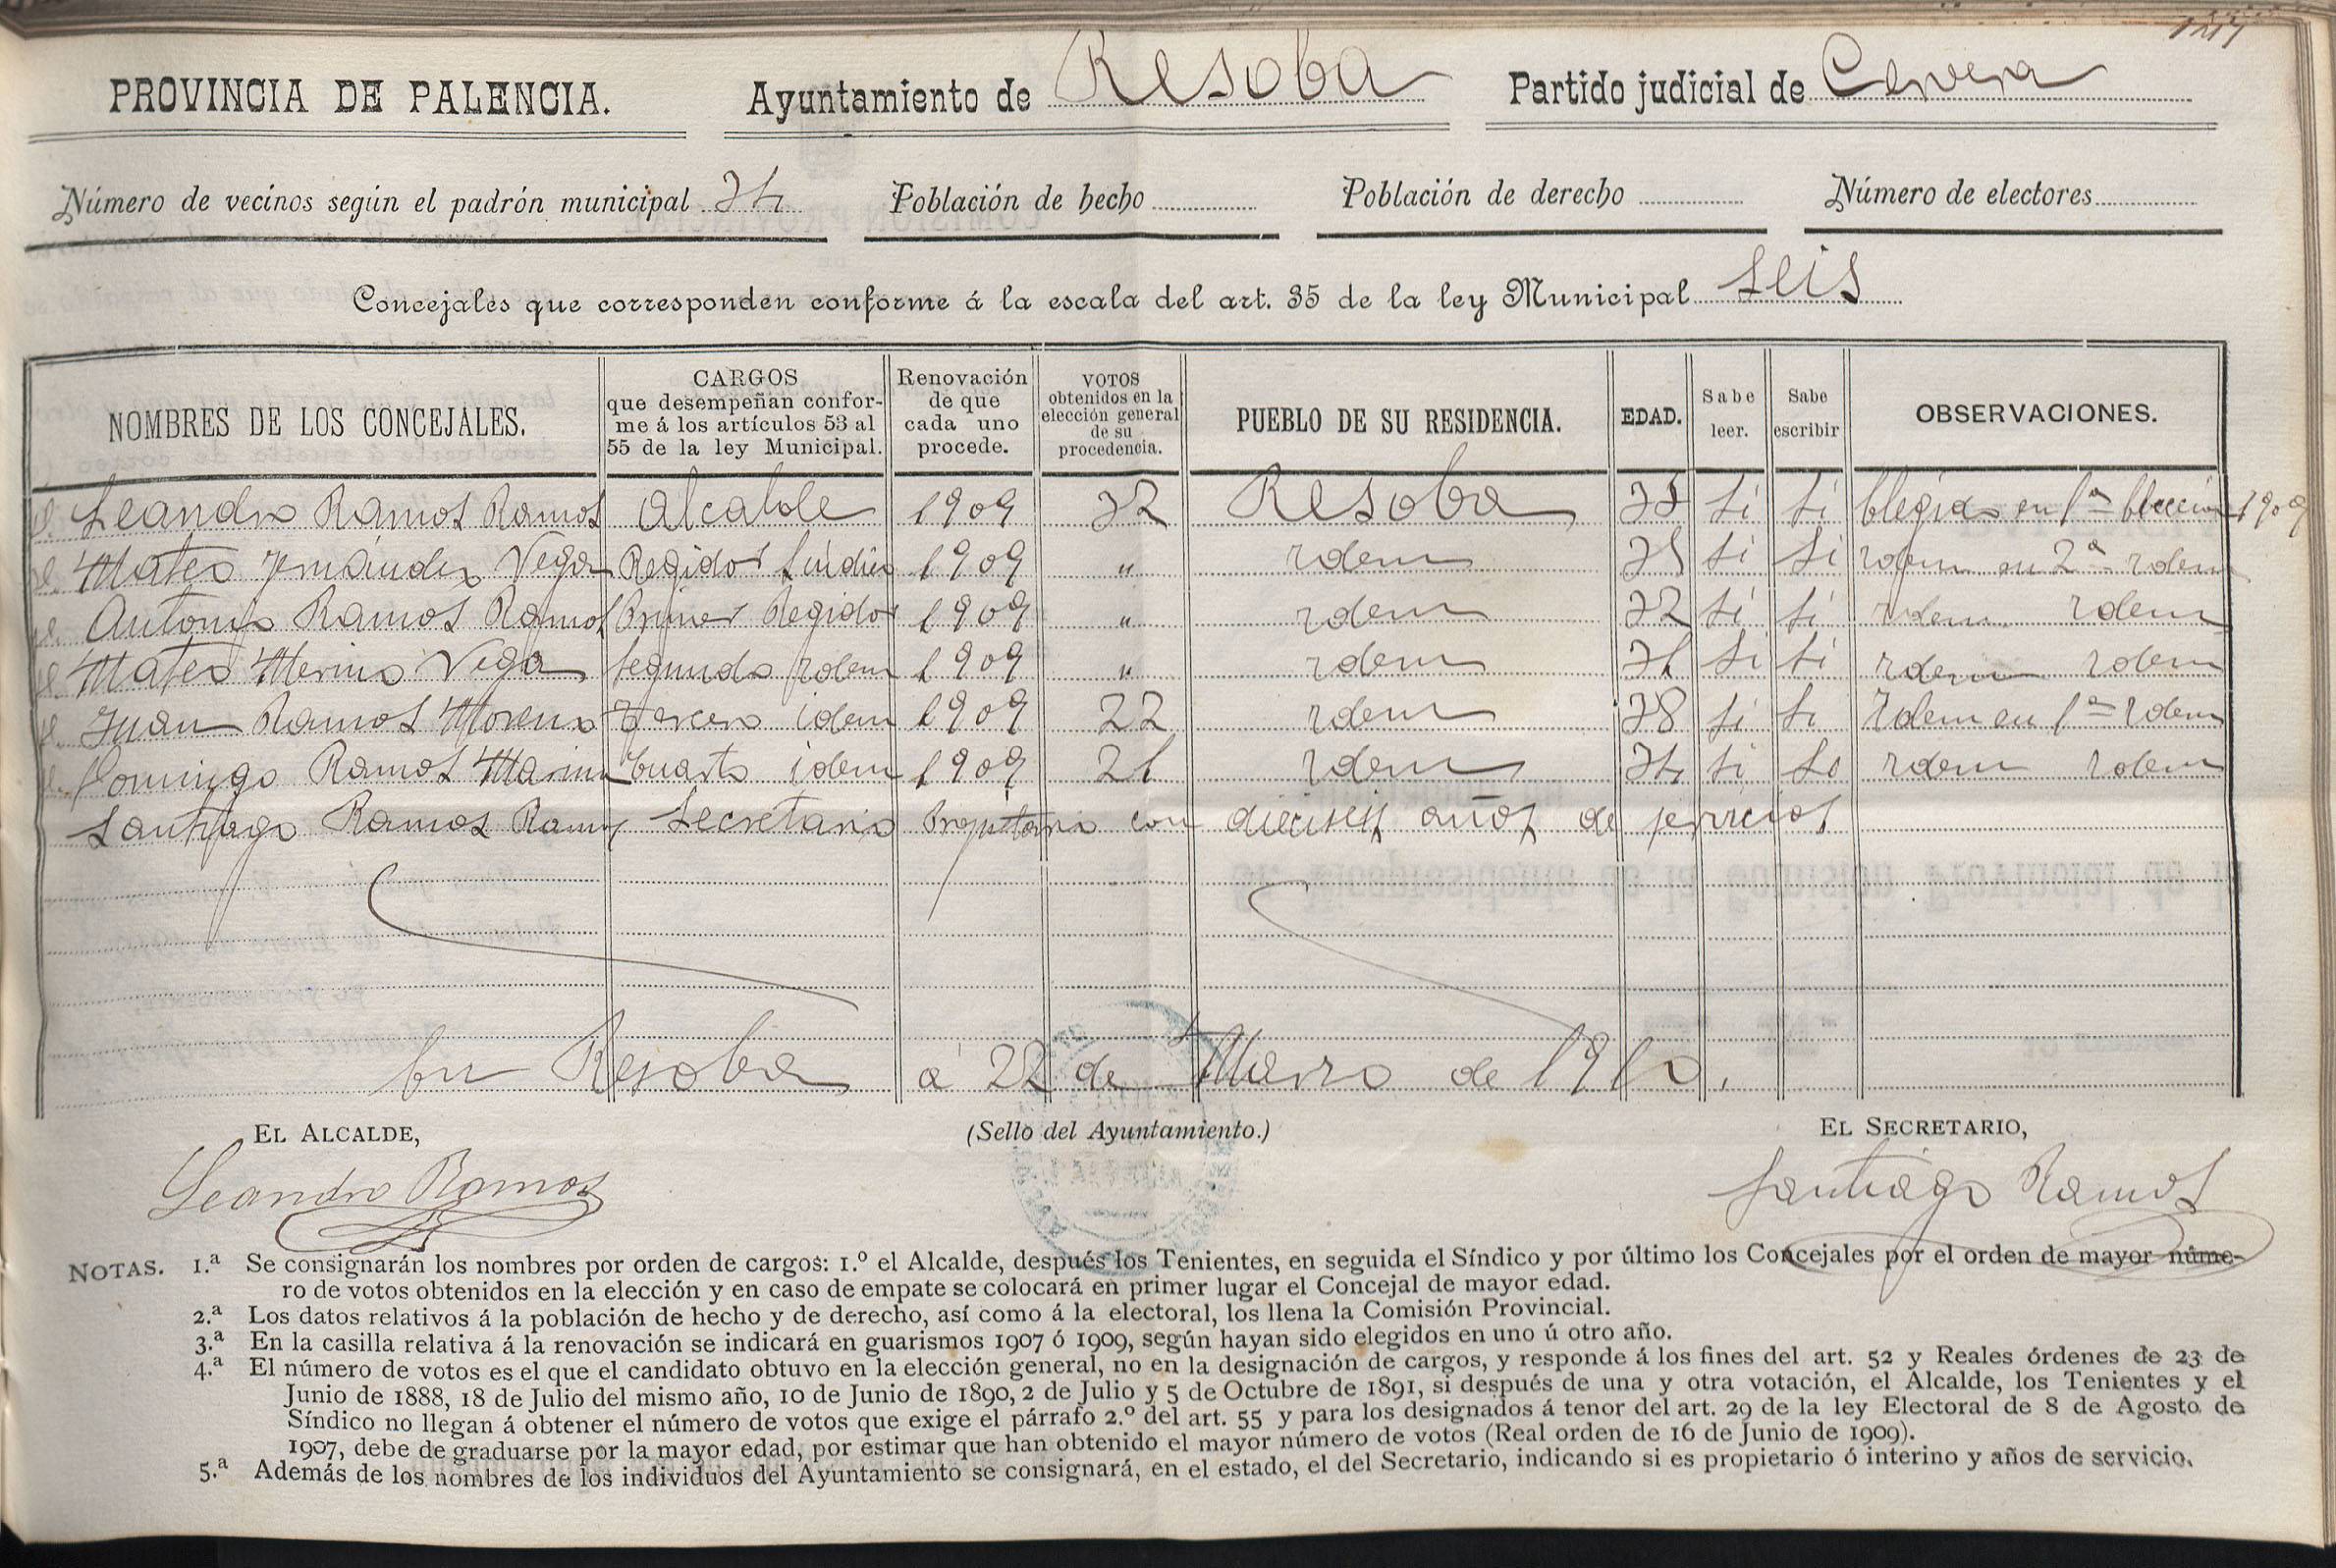 PROVINCIA DE PALENCIA. Ayuntamiento de Resoba Partido judicial de Cervera
Número de vecinos según el padrón municipal Población de hecho Población de derecho Número de electores
Concejales que corresponden conforme á la escala del art. 35 de la ley Municipal seis
NOMBRES DE LOS CONCEJALES.
CARGOS
que desempeñan confor-
me á los artículos 53 al
55 de la ley Municipal.
Renovación
de que
cada uno
procede.
VOTOS
obtenidos en la
elección general
de su
procedencia.
PUEBLO DE SU RESIDENCIA.
EDAD.
Sabe
leer.
Sabe
escribir
OBSERVACIONES.
Leandro Ramos Ramos Alcalde 1909 Resoba si si en 1ª 1909
Mateo Vega Regidor Síndico 1909 " idem si si idem en 2ª idem
Antonio Ramos Ramos Primer Regidor 1909 " idem si si idem idem
Mateo Merino Vega Segundo idem 1909 " idem si si idem idem
Juan Ramos Tercero idem 1909 22 idem si si Idem en 1ª idem
Domingo Ramos Cuarto idem 1909 21 idem si idem idem
Santiago Ramos Ramos Secretario Propietario con dieciseis años de servicios
En Resoba a 22 de Marzo de 1910.
EL ALCALDE, (Sello del Ayuntamiento.) EL SECRETARIO,
Leandro Ramos Santiago Ramos
NOTAS. 1.ª Se consignarán los nombres por orden de cargos: 1.º el Alcalde, después los Tenientes, en seguida el Síndico y por último los Concejales por el orden de mayor núme-
ro de votos obtenidos en la elección y en caso de empate se colocará en primer lugar el Concejal de mayor edad.
2.ª Los datos relativos á la población de hecho y de derecho, así como á la electoral, los llena la Comisión Provincial.
3.ª En la casilla relativa á la renovación se indicará en guarismos 1907 ó 1909, según hayan sido elegidos en uno ú otro año.
4.ª El número de votos es el que el candidato obtuvo en la elección general, no en la designación de cargos, y responde á los fines del art. 52 y Reales órdenes de 23 de
Junio de 1888, 18 de Julio del mismo año, 10 de Junio de 1890, 2 de Julio y 5 de Octubre de 1891, si después de una y otra votación, el Alcalde, los Tenientes y el
Síndico no llegan á obtener el número de votos que exige el párrafo 2.º del art. 55 y para los designados á tenor del art. 29 de la ley Electoral de 8 de Agosto de
1907, debe de graduarse por la mayor edad, por estimar que han obtenido el mayor número de votos (Real orden de 16 de Junio de 1909).
5.ª Además de los nombres de los individuos del Ayuntamiento se consignará, en el estado, el del Secretario, indicando si es propietario ó interino y años de servicio.